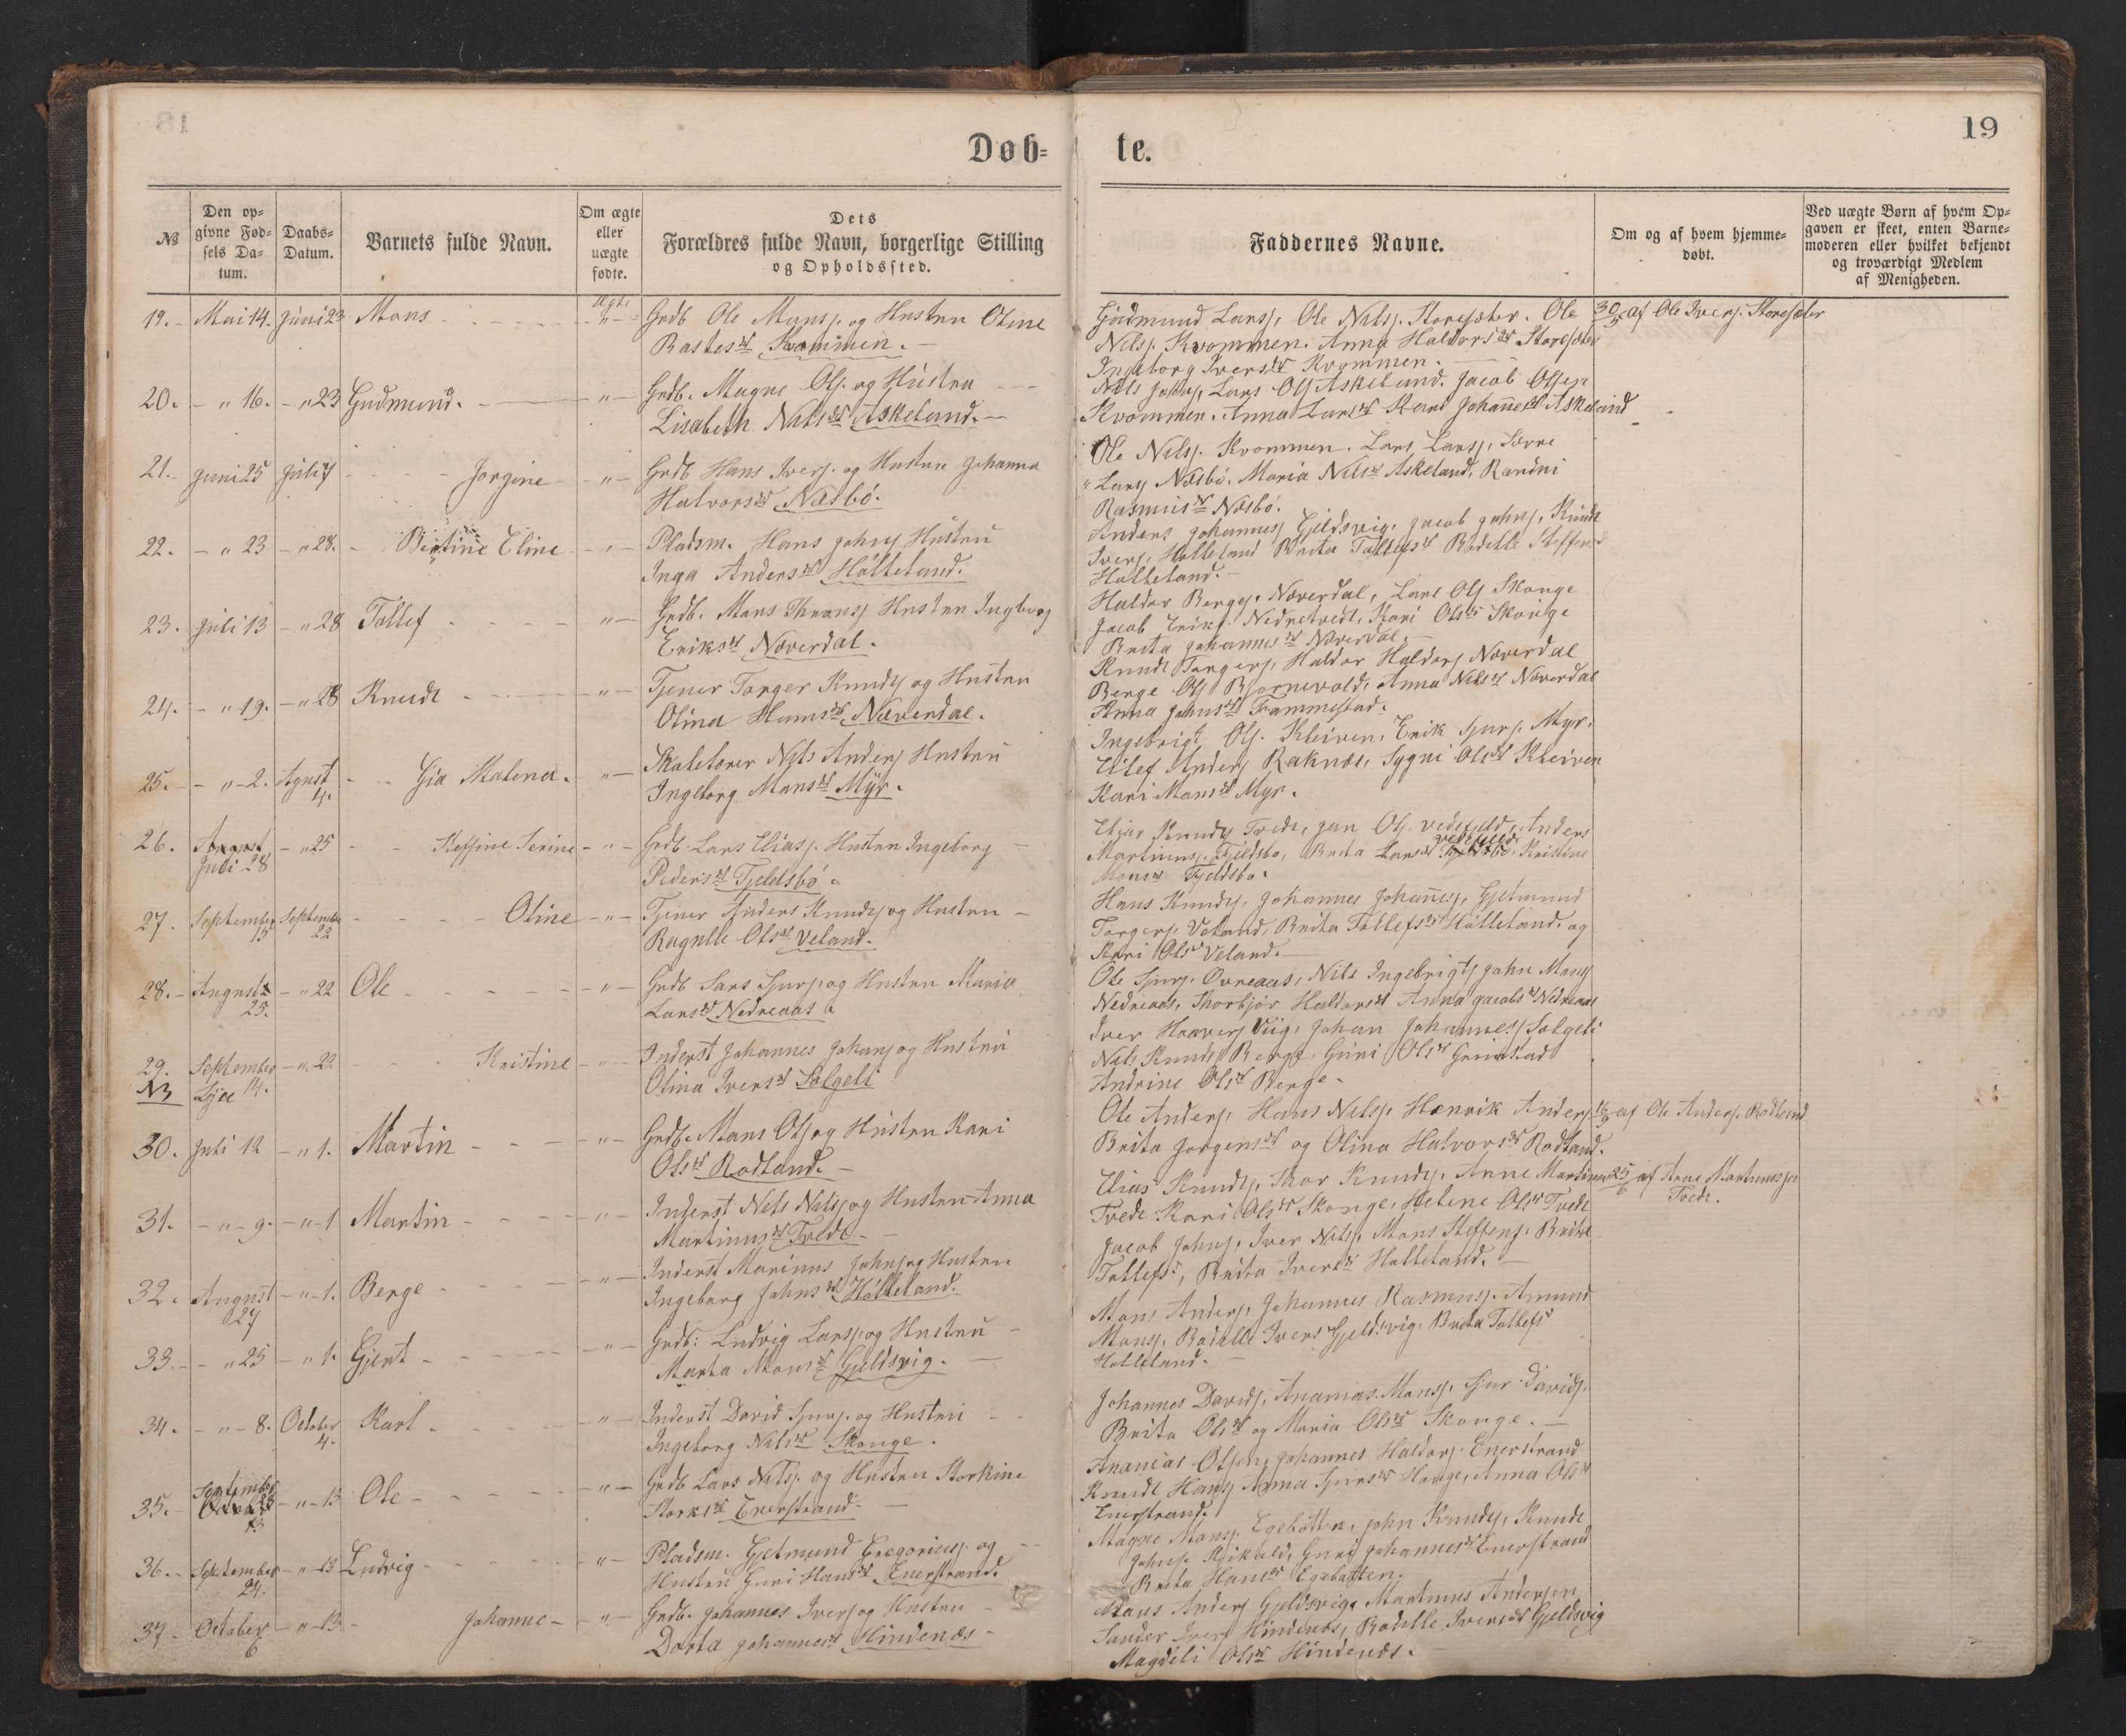 18
19
Døb=
te.
№
Den op=
givne Fød=
sels Da=
tum.
Daabs=
Datum.
Barnets fulde Navn.
Om ægte
eller
uægte
fødte.
Dets
Forældres fulde Navn, borgerlige Stilling
og Opholdssted.
Faddernes Navne.
Om og af hvem hjemme=
døbt.
Ved uægte Børn af hvem Op=
gaven er skeet, enten Barne=
moderen eller hvilket bekjendt
og troværdigt Medlem
af Menigheden.
19. Mai 14. Juni 23 Mons Ægte Grdb Ole Monsj. og Hustru Oline
Bastesdt Kvammen.
Gudmund Larsj, Ole Nilsj. Storesæter. Ole
Nilsj. Kvommen. Anna Haldorsdt Storesæter
Ingeborg Iversdt Kvommen.
30/5 af Ole Iversj. Storesæter
20. " 16. " 23 Gudmund. " Grdb. Magne Olsj. og Hustru
Lisabeth Nilsdt Askeland.
Nils Johnsj, Lars Olsj Askeland. Jacob Olsen
Kvommen. Anna Larsdt Kari Johannesdt Askeland
21. Juni 25 Juli 7 Jorgine " Grdb Hans Iversj. og Hustru Johanna
Halvorsdt Næsbö.
Ole Nilsj. Kvommen. Lars Larsj,
" Larsj Næsbö. Maria Nilsdt Askeland, Randni
Rasmusdt Næsbö.
22. " 23 " 28. Bertine Eline " Pladsm. Hans Johnsj Hustru
Inga Andersdt Hólleland.
Anders Johannesj Gjeldsvig. Jacob Johnsj, Knudt
Iversj, Holleland Brita Tollefsdt Bodelle Steffensd
Holleland.
23. Juli 13 " 28 Tollef " Grdb. Mons Hustru Ingborg
Eriksdt Noverdal.
Haldor Bergesj. Noverdal, Lars Olsj Skonge
Jacob Eriksj. Nedretvedt, Kari Olsdt Skonge
Brita Johannesdt Noverdal.
24. " 19. " 28 Knudt " Tjener Torger Knudsj og Hustru
Olina Hansdt Noverdal.
Knudt Torgersj, Haldor Haldorsj Noverdal
Berge Olsj Bjornevold, Anna Nilsdt Noverdal
Anna Johnsdt Frammestad.
25. " 2. Agust
4. Gia Malena. " Skolelærer Nils Andersj Hustru
Ingeborg Monsdt Myr.
Ingebrigt Olsj. Kleiven, Erik Sjursj. Myr,
Elef Andersj Raknæs, Sygni Olsdt Kleiven
Kari Monsdt Myr.
26. August
Juli 28 " 25 Steffine Serine " Grdb. Lars Eliasj. Hustru Ingeborg
Pedersdt Tjeldsbó.
Elias Knudsj Tvedt, Jan Olsj. vedefjeld, Anders
Martinusj. Tjeldsbo, Brita Larsdt vedefjeld. Kristine
Monsdt Tjeldsbo.
27. September
15 September
22 Oline " Tjener Anders Knudsj og Hustru
Ragnlle Olsdt Veland.
Hans Knudsj, Johannes Johannesj, Gjetmund
Torgersj, Veland, Brita Tollefsdt Hólleland. og
Kari Olsdt Veland.
28. August
25. " 22 Ole " Grdb Lars Sjursj og Hustru Marie
Larsdt Nedreaas.
Ole Sjursj. Ovreaas, Nils Ingebrigtsj John Monsj
Nedreaas, Thorbjör Haldorsdt Anna Jacobsdt Nedreaas
29. September 14. " 22 Kristine " Inderst Johannes Johansj og Hustru
Olina Iversdt Solgeli
Iver Haaversj Viig, Johan Johannesj Solgeli
Nils Knudsj Berge, Guri Olsdt Grimstad
Andrine Olsdt Berge.
30. Juli 12 " 1. Martin " Grdb. Mons Olsj og Hustru Kari
Olsdt Rodland.
Ole Andersj, Hans Nilsj. Henrik Andersj.
Brita Jorgensdt og Olina Halvorsdt Rodland.
af Ole Andersj. Rodland
31. " 9. " 1 Martin " Inderst Nils Nilsj og Hustru Anna
Martinusdt Tvedt.
Elias Knudsj, Thor Knudsj. Anne
Tvedt Kari Olsdt Skonge, Helene Olsdt Tvedt
af Arne Martinussen
Tvedt.
32. August
27 " 1. Berge " Inderst Marinus Johnsj og Hustru
Ingeborg Johnsdt Hólleland.
Jacob Johnsj, Iver Nilsj, Mons Steffensj. Brita
Tollefs, Brita Iversdt Holleland.
33. " 25 " 1. Gjert " Grdb: Ludvig Larsj og Hustru
Marta Monsdt Gjeldsvig.
Mons Andersj, Johannes Rasmusj. Amund
Monsj, Bodelle Ivers Gjeldsvig. Brita Tollefs
Holleland.
34. " 8. October
4. Karl " Inderst David Sjursj. og Hustru
Ingeborg Nilsdt Skonge.
Johannes Davidsj, Ananias Monsj. Sjur Davidsj.
Brita Olsdt og Maria Olsdt Skonge.
35. September 25 " 13 Ole " Grdb Lars Nilsj. og Hustru Storkine
Storksdt Enerstrand.
Ananias Olsen, Johannes Haldorsj. Enerstrand
Knudt Hansj Anna Sjursdt Hauge, Anna Olsdt
Enerstrand.
36. September
24. " 13 Ludvig " Pladsm. Gjetmund Gregoriusj. og
Hustru Guri Hansdt Enerstrand.
Magne Monsj. Egebötten, John Knudsj, Knudt
Johnsj. Guri Johannesdt Enerstrand
Brita Hansdt Egebotten.
37 October
6 " 13 Johanne " Grdb. Johannes Iversj og Hustru
Dorta Johannesdt Hindenæs
Mons Andersj Gjeldsvig, Martinus Andersen,
Sander Iversj Hindenes, Bodelle Iversdt Gjeldsvig
Magdeli Olsdt Hindenes.